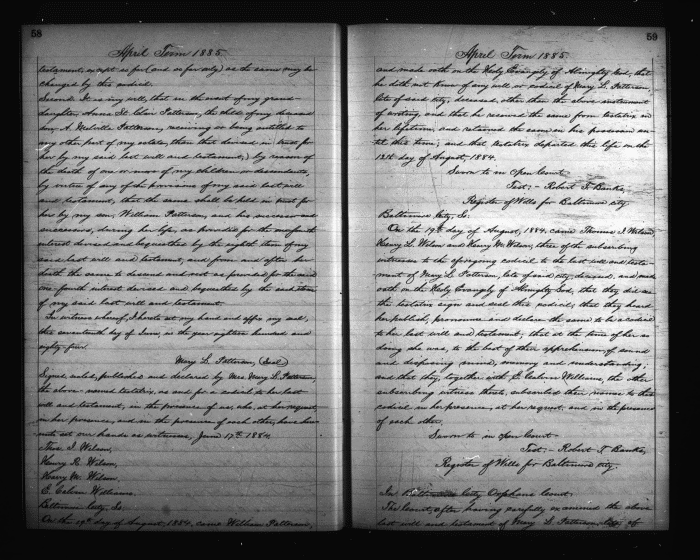 58
April Term 1885
testament, except so far (and so far only) as the same may be
changed by this codicil.
Second. It is my will, that in the event of my grand-
daughter, Anna St. Clair Patterson, the child of my deceased
son A. Melville Patterson, receiving or being entitled to
any other part of my estate, than that devised in trust for
her by my said last will and testament, by reason of
the death of one or more of my children or descendants,
by virtue of any of the provisions of my said last will
and testament, that the same shall be held in trust for
her by my son, William Patterson, and his successor and
successors, during her life, as provided for the one fourth
interest devised and bequeathed by the eighth item of my
said last will and testament, and from and after her
death the same to descend and rest as provided for the said
one-fourth interest devised and bequeathed by the said item
of my said last will and testament.
In witness whereof, I hereto set my hand and affix my seal,
this seventeenth day of June, in the year eighteen hundred and
eighty four.
Mary L. Patterson, (Seal)
Signed, sealed, published and declared by Mrs. Mary L. Patterson,
the above named testatrix, as and for a codicil to her last
will and testament, in the presence of us, who, at her request,
in her presence, and in the presence of each other, have here-
unto set our hands as witnesses, June 17th 1884.
Thos. I. Wilson,
Henry R. Wilson,
Harry M. Wilson,
E. Calvin Williams.
Baltimore City, Sc.
On the 19th day of August, 1884, came William Patterson,
59
April Term 1885.
and made oath on the Holy Evangely of Almighty God, that
he doth not know of any will or codicil of Mary L. Patterson,
late of said city, deceased, other than the above instrument
of writing, and that he received the same from testatrix in
her lifetime, and retained the same in his possession un-
til this time; and that testatrix departed this life on the
day of August, 1884.
Sworn to in open Court
Test:- Robert T. Banks,
Register of Wills for Baltimore city
Baltimore City, Sc.
On the 19th day of August, 1884, came Thomas I. Wilson,
Henry Wilson and Harry M. Wilson, three of the subscribing
witnesses to the aforegoing codicil to the last will and testa-
ment of Mary L. Patterson, late of said city, deceased, and made
oath on the Holy Evangely of Almighty God, that they did see
the testatrix sign and seal this codicil; that they heard
her publish, pronounce and declare the same to be a codicil
to her last will and testament; that at the time of her so
doing she was, to the best of their apprehension, of sound
and disposing mind, memory and understanding;
and that they, together with E. Calvin Williams, the other
subscribing witness thereto, subscribed their names to this
codicil in her presence, at her request, and in the presence
of each other.
Sworn to in open Court
Test:- Robert T. Banks,
Register of Wills for Baltimore city
In Baltimore City Orphans Court.
The Court, after having carefully examined the above
last will and testament of Mary L. Patterson, late of